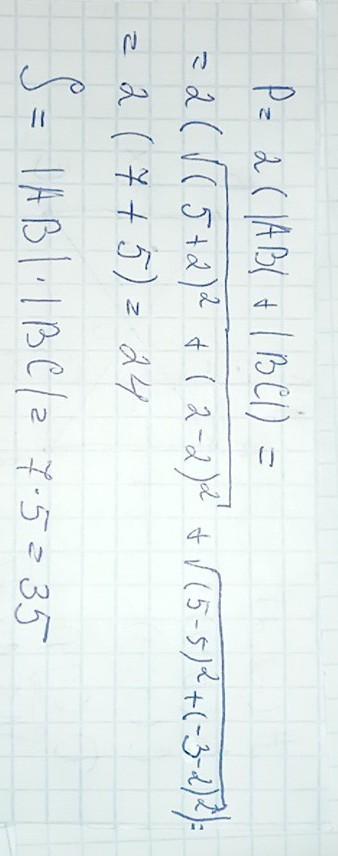 P = 2 (|AB| + |BC|) =
= 2 (√((5+2)² + (2-2)²) + √((5-5)² + (-3-2)²)) =
= 2 (7 + 5) = 24
S = |AB| · |BC| = 7 · 5 = 35